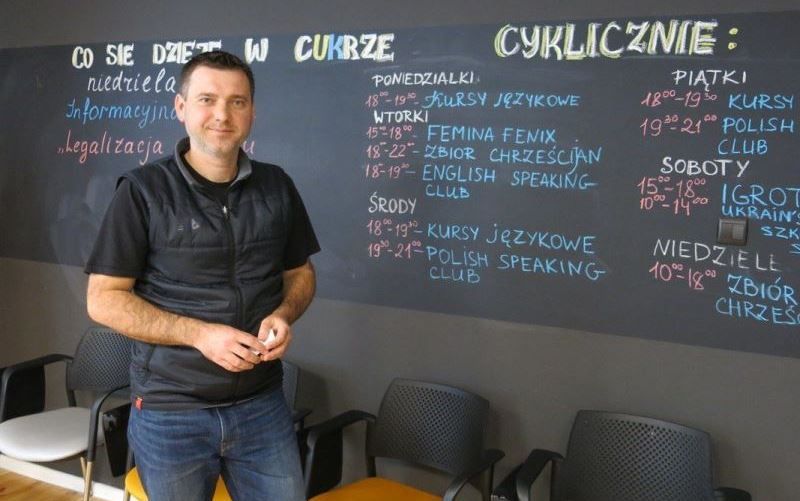 CO SIĘ DZIEJE W CUKRZE
niedziela
Informacyjna
"Legalizacja
CYKLICZNIE:
PONIEDZIALKI
18⁰⁰-19³⁰- KURSY JĘZYKOWE
WTORKI
15⁰⁰-18⁰⁰- FEMINA FENIX
ZBIÓR CHRZEŚCIJAN
ENGLISH SPEAKING
CLUB
ŚRODY
18⁰⁰-19³⁰- KURSY JĘZYKOWE
19³⁰-21⁰⁰- POLISH SPEAKING
CLUB
PIĄTKI
18⁰⁰-19³⁰ KURSY
19³⁰-21⁰⁰ POLISH
CLUB
SOBOTY
15⁰⁰-18⁰⁰ IGROT
10⁰⁰-14⁰⁰ UKRAIN'S
SZK
NIEDZIELE
10⁰⁰-18⁰⁰ ZBIÓR
CHRZEŚC